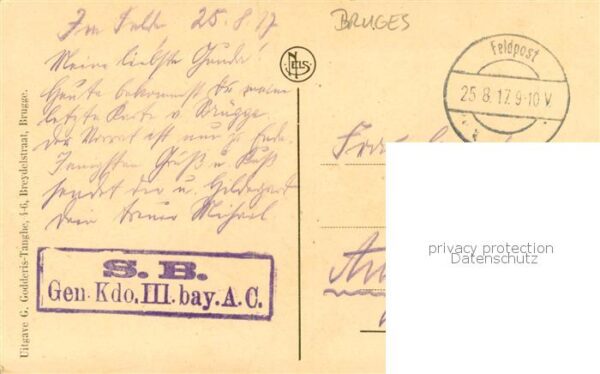 Im Felde 25.8.17
Meine liebste Gunda!
Heute bekommst Du meine
letzte Karte v. Brügge
der Vorrat ist nun zu Ende.
Innigsten Gruß u. Kuß
sendet dir u. Hildegard
Dein treuer Michael
S. B.
Gen. Kdo. III. bay. A. C.
Uitgave G. Godderis-Tanghe, 4-6, Breydelstraat, Brugge.
NELS
BRUGES
Feldpost
25 8. 17. 9-10 V.
privacy protection
Datenschutz